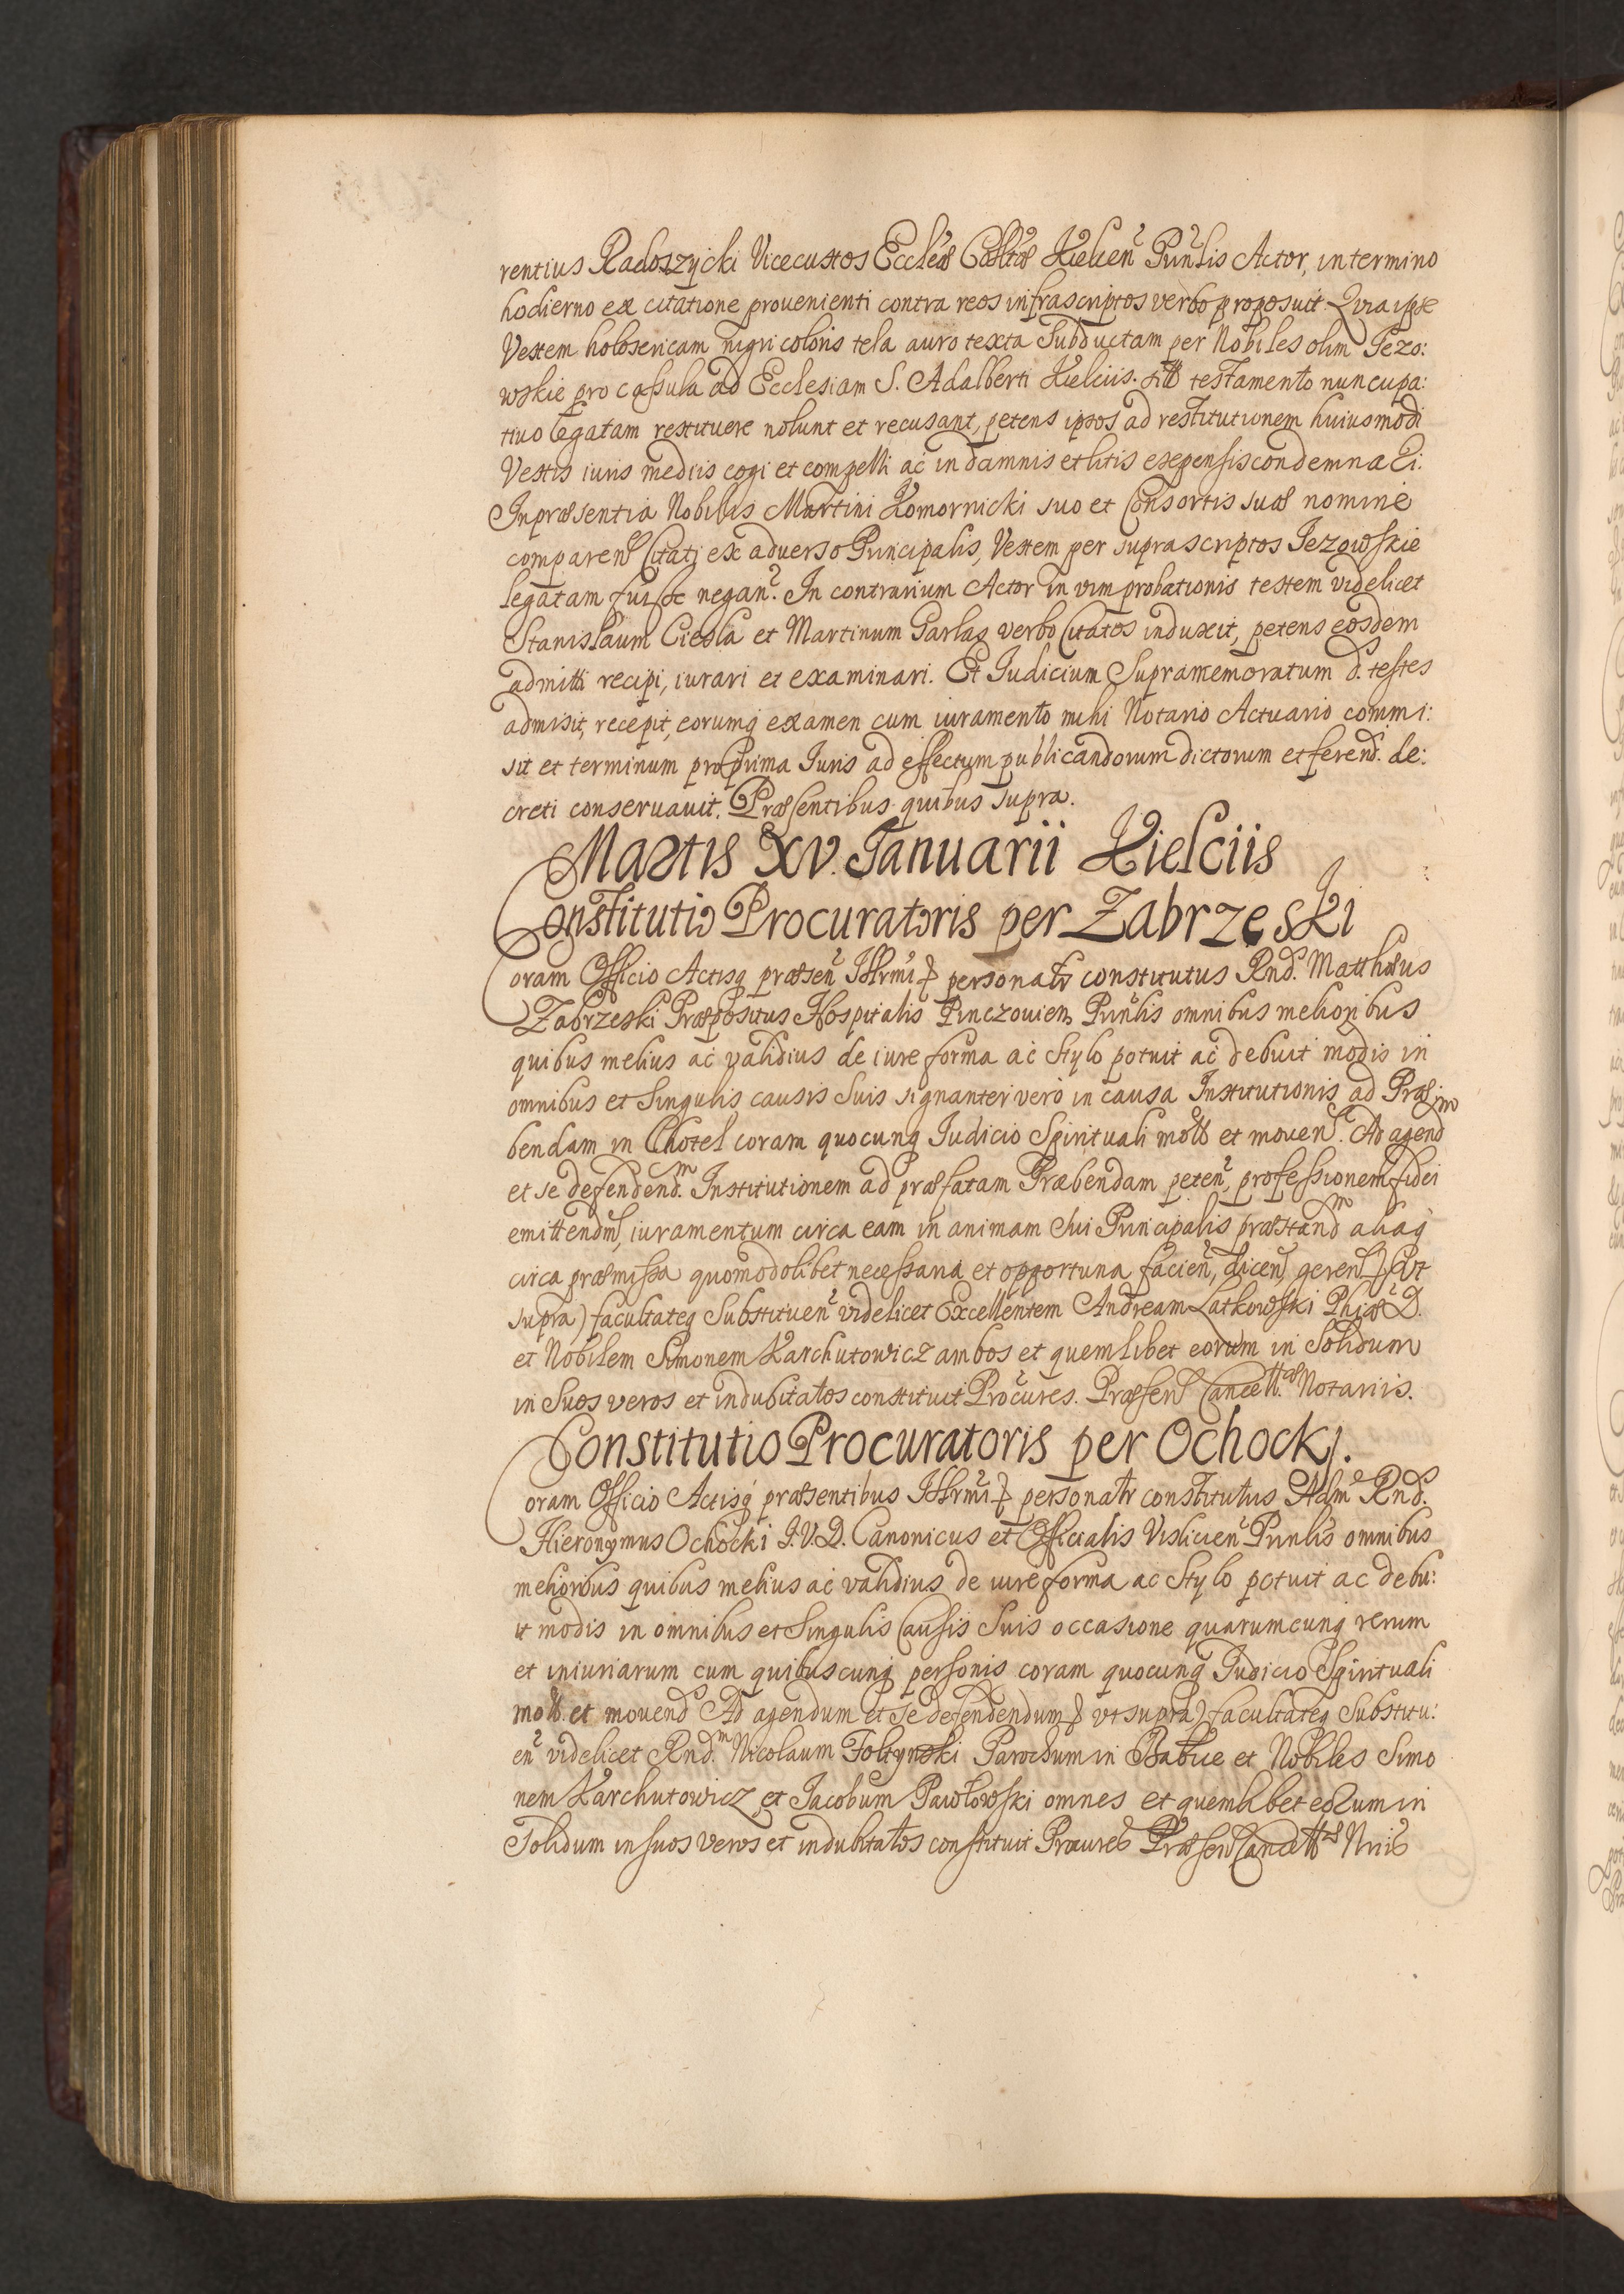 rentius Radoszycki Vicecustos Eccleæ Colltæ Kielcen Pnnlis Actor, in termino
hodierno ex citatione provenienti contra reos infrascriptos verbo proposuit. Quia ipse
Vestem holosericam nigri coloris tela auro texta Subductam per Nobiles olim Jezo:
wskie pro cassula ad Ecclesiam S. Adalberti Kielciis. testamento nuncupa:
tivo legatam restituere nolunt et recusant, petens ipsos ad restitutionem huiusmodi
Vestis iuris mediis cogi et compelli ac in damnis et litis expensis condemna Ei.
In præsentia Nobilis Martini Komornicki suo et Consortis suæ nomine
comparen Citati ex adverso Principalis, Vestem per suprascriptos Jezowskie
legatam fuisse negan. In contrarium Actor in vim probationis testem videlicet
Stanislaum Ciesla et Martinum Garlag verbo Citatos induxit, petens eosdem
admitti recipi, iurari et examinari. Et Judicium Supramemoratum d. testes
admisit, recepit, eorumq examen cum iuramento mihi Notario Actuario commi:
sit et terminum pro prima Juris ad effectum publicandorum dictorum et ferend. de:
creti conservavit. Præsentibus quibus supra.
Martis XV. Januarii Kielciis
Constitutio Procuratoris per Zabrzeski
Coram Officio Actisq præsen personalr constitutus Rnd. Matthæus
Zabrzeski Præpositus Hospitalis Pinczovien Pnnlis omnibus melioribus
quibus melius ac validius de iure forma ac Stylo potuit ac debuit modis in
omnibus et Singulis causis Suis signanter vero in causa Institutionis ad Præ
bendam in Chotel coram quocunq Judicio Spirituali et moven. Ad agend
et se defendend.m Institutionem ad præfatam Præbendam peten, professionem fidei
emittendm, iuramentum circa eam in animam Sui Principalis præstandm aliaq
circa præmissa quomodolibet necessaria et opportuna facien, dicen, geren (vt
supra) facultateq Substituen videlicet Excellentem Andream Latkowski Phiæ D.
et Nobilem Simonem Karchutowicz ambos et quemlibet eorum in Solidum
in Suos veros et indubitatos constituit Procures. Præsen Cancellæ Notariis.
Constitutio Procuratoris per Ochockj.
Coram Officio Actisq præsentibus personalr constitutus Adm Rnd.
Hieronymus Ochocki J.V.D. Canonicus et Officialis Vislicien Pnnlis omnibus
melioribus quibus melius ac validius de iure forma ac Stylo potuit ac debu:
it modis in omnibus et Singulis Causis Suis occasione quarumcunq rerum
et iniuriarum cum quibuscunq personis coram quocunq Judicio Spirituali
et movend Ad agendum et se defendendum vt supra) facultateq Substitu:
en videlicet Rnd.m Nicolaum Foltynski Parochum in et Nobiles Simo
nem Karchutowicz et Jacobum Pawlowski omnes et quemlibet eorum in
Solidum in suos veros et indubitatos constituit Procures Præsen Cancellæ Nriis